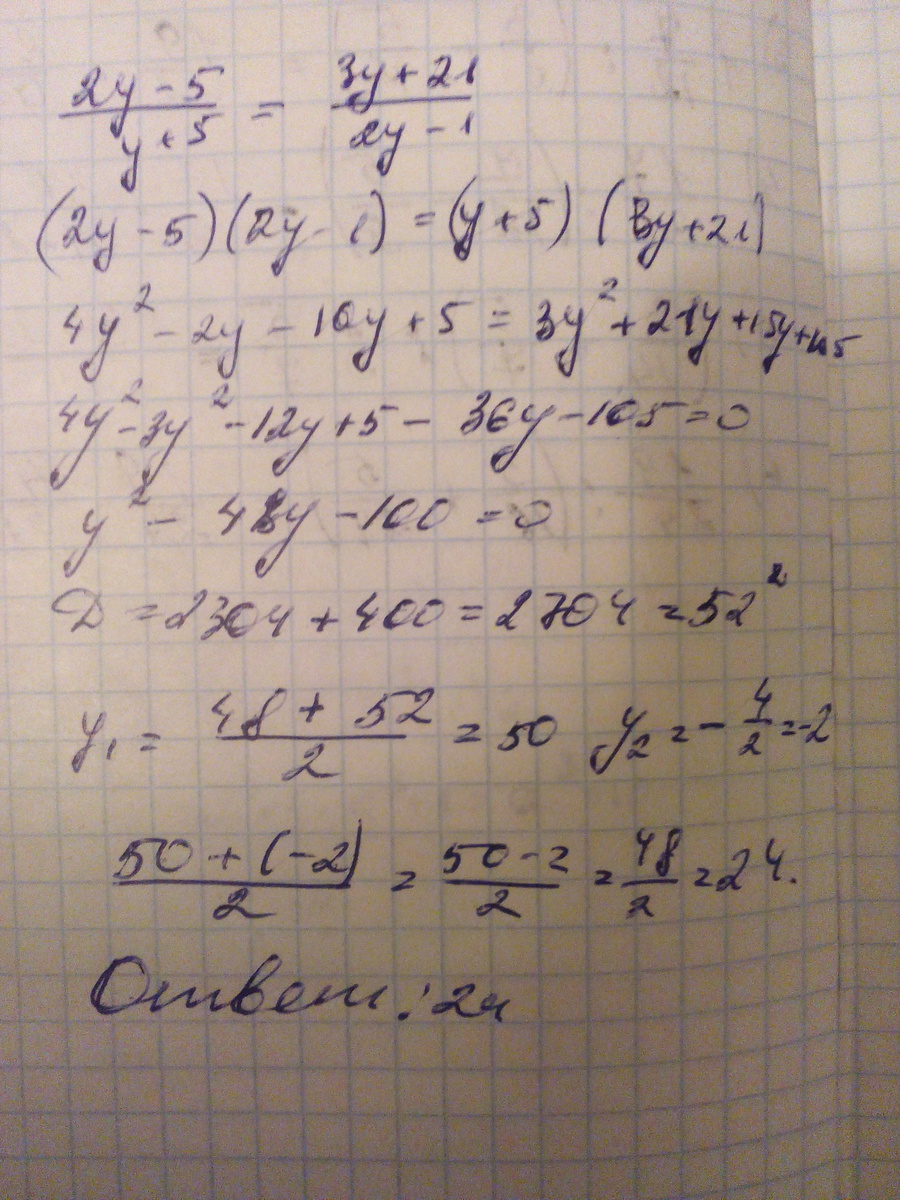 (2y - 5)/(y + 5) = (3y + 21)/(2y - 1)
(2y - 5)(2y - 1) = (y + 5) (3y + 21)
4y² - 2y - 10y + 5 = 3y² + 21y + 15y + 105
4y² - 3y² - 12y + 5 - 36y - 105 = 0
y² - 48y - 100 = 0
D = 2304 + 400 = 2704 = 52²
y₁ = (48 + 52)/2 = 50 y₂ = -4/2 = -2
(50 + (-2))/2 = (50 - 2)/2 = 48/2 = 24.
Ответ: 24